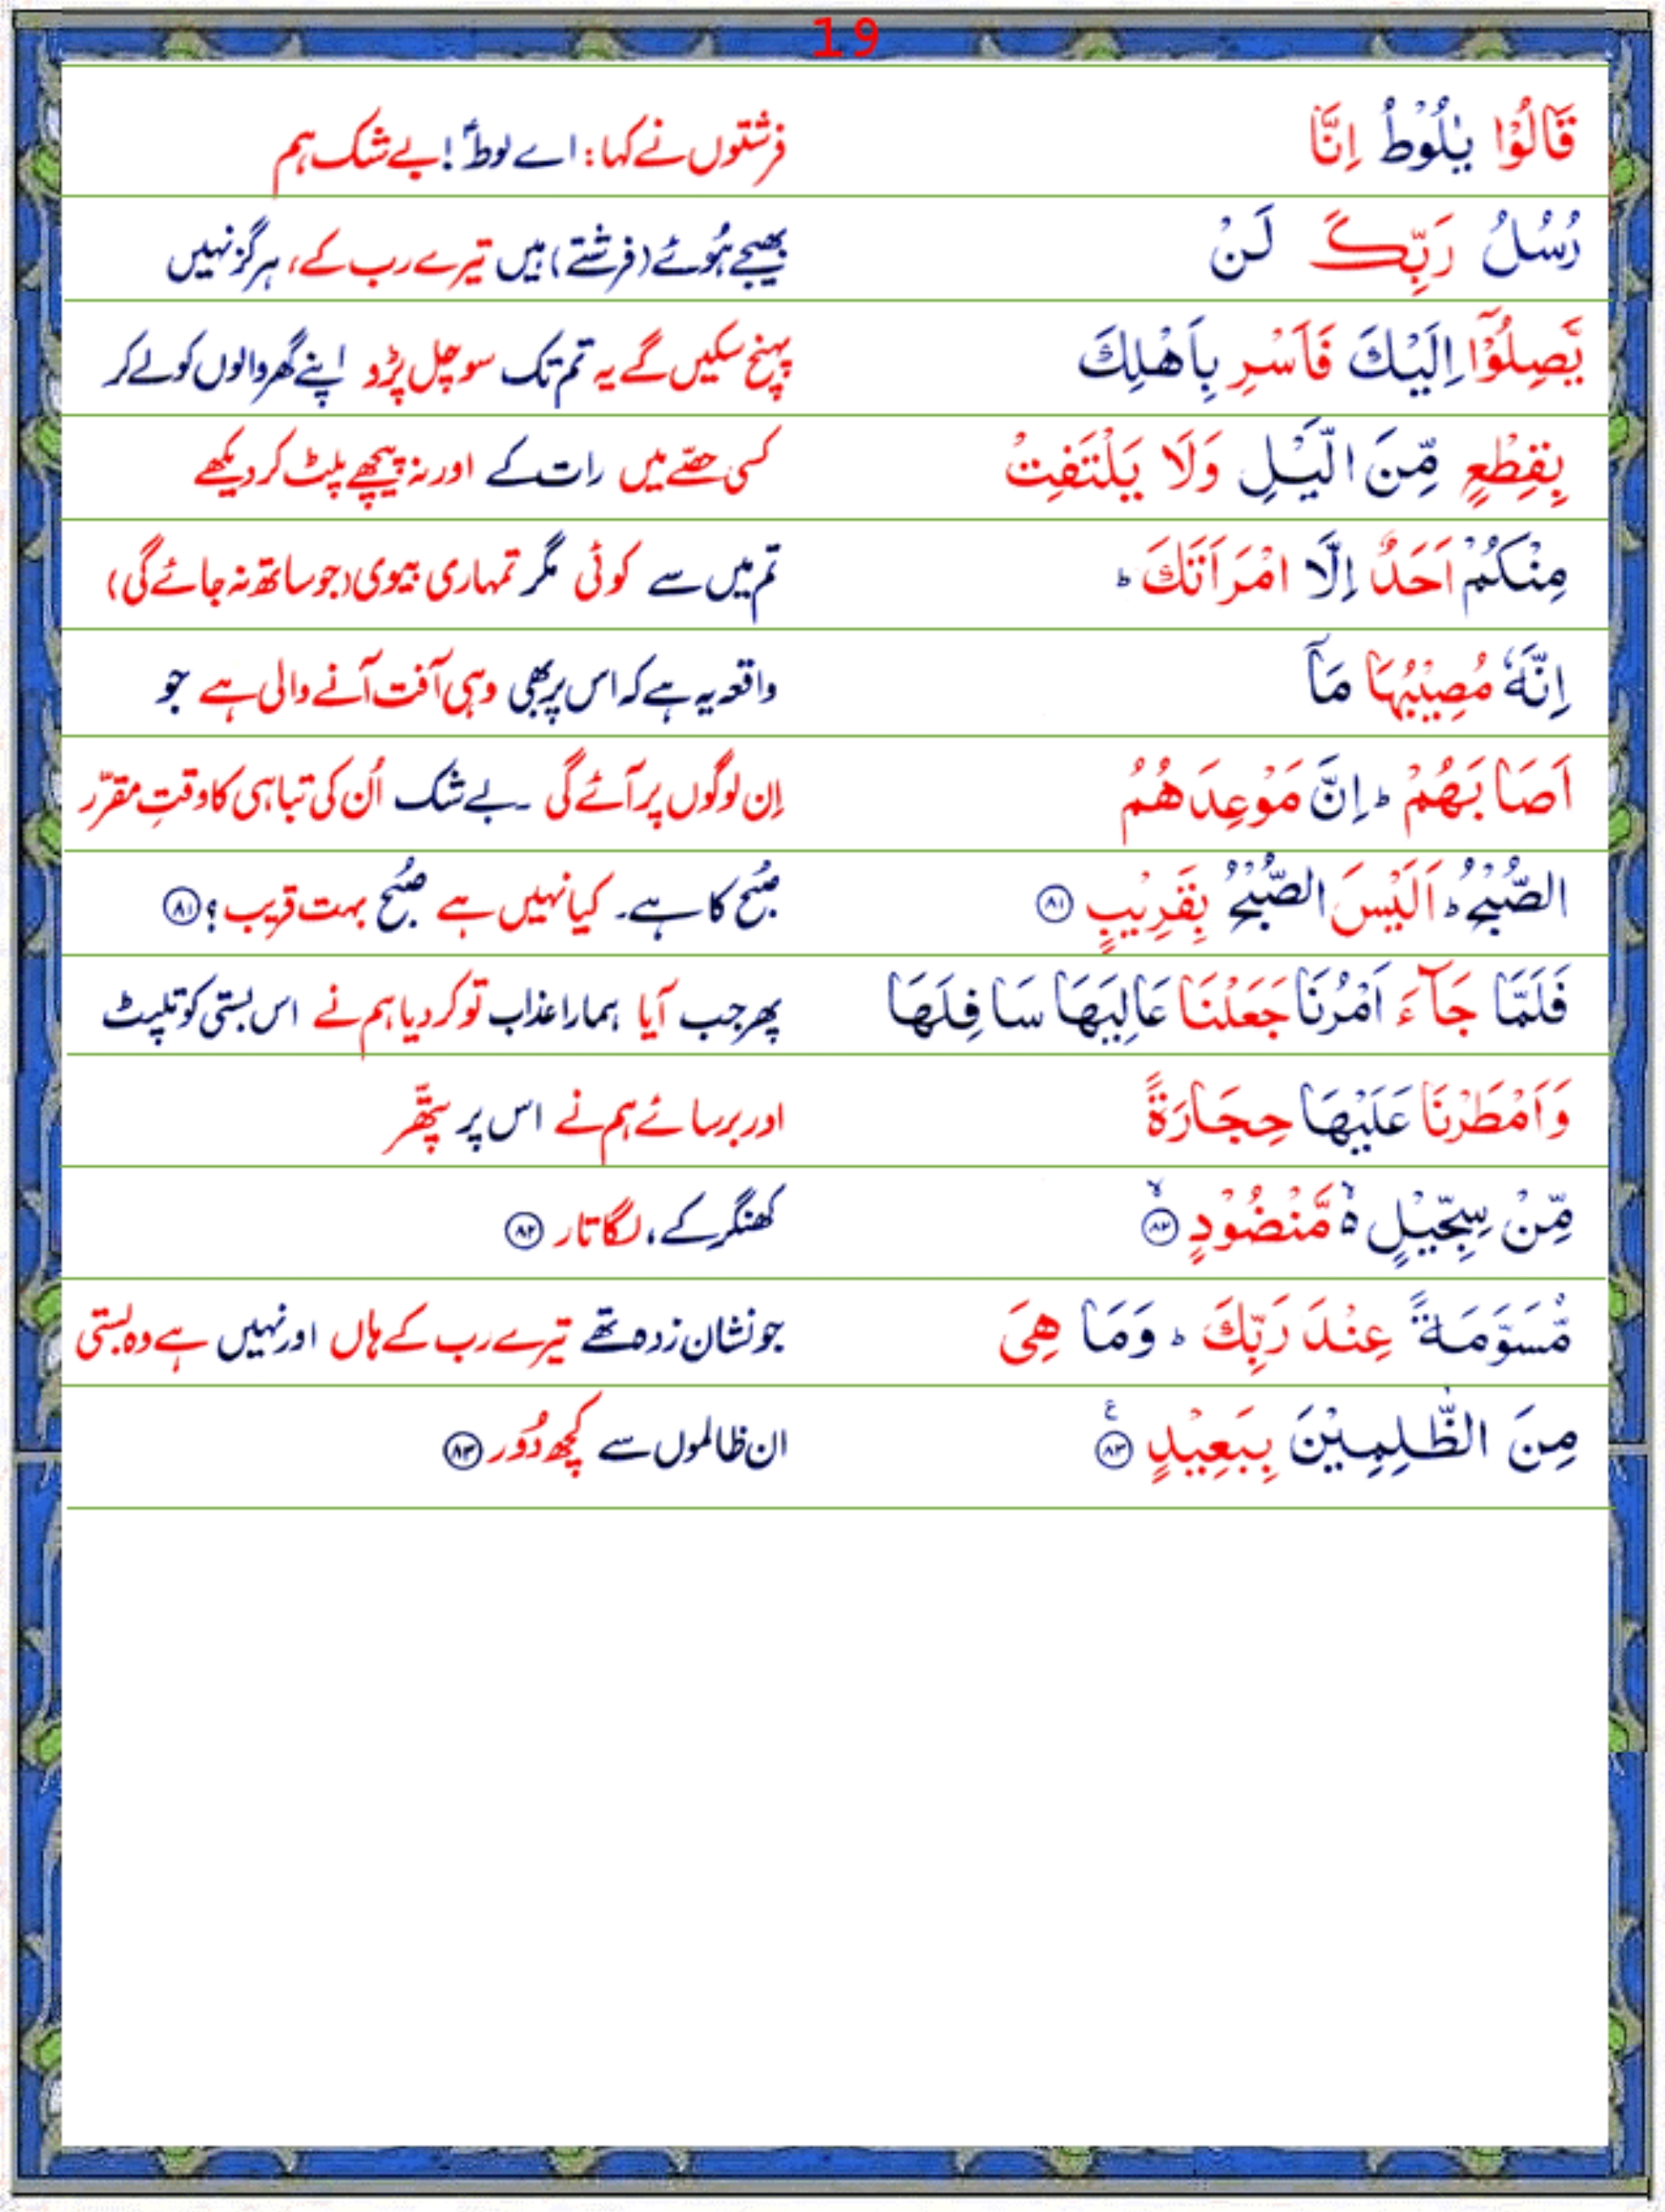 19
قَالُوْا يٰلُوْطُ اِنَّا فرشتوں نے کہا: اے لوطؑ! بے شک ہم
رُسُلُ رَبِّكَ لَنْ بھیجے ہُوئے (فرشتے) ہیں تیرے رب کے، ہرگز نہیں
يَّصِلُوْۤا اِلَيْكَ فَاَسْرِ بِاَهْلِكَ پہنچ سکیں گے یہ تم تک سو چل پڑو اپنے گھر والوں کو لے کر
بِقِطْعٍ مِّنَ الَّيْلِ وَلَا يَلْتَفِتْ کسی حصّے میں رات کے اور نہ پیچھے پلٹ کر دیکھے
مِنْكُمْ اَحَدٌ اِلَّا امْرَاَتَكَ ؕ تم میں سے کوئی مگر تمہاری بیوی (جو ساتھ نہ جائے گی)
اِنَّهٗ مُصِيْبُهَا مَاۤ واقعہ یہ ہے کہ اس پر بھی وہی آفت آنے والی ہے جو
اَصَابَهُمْ ؕ اِنَّ مَوْعِدَهُمُ اِن لوگوں پر آئے گی ۔ بے شک اُن کی تباہی کا وقتِ مقرّر
الصُّبْحُ ؕ اَلَيْسَ الصُّبْحُ بِقَرِيْبٍ ۸۱ صُبح کا ہے۔ کیا نہیں ہے صُبح بہت قریب؟ ۸۱
فَلَمَّا جَآءَ اَمْرُنَا جَعَلْنَا عَالِيَهَا سَافِلَهَا پھر جب آیا ہمارا عذاب تو کر دیا ہم نے اس بستی کو تلپٹ
وَاَمْطَرْنَا عَلَيْهَا حِجَارَةً اور برسائے ہم نے اس پر پتھّر
مِّنْ سِجِّيْلٍ ۙ۬ مَّنْضُوْدٍ ۙ ۸۲ کھنگر کے، لگاتار ۸۲
مُّسَوَّمَةً عِنْدَ رَبِّكَ ؕ وَمَا هِيَ جو نشان زدہ تھے تیرے رب کے ہاں اور نہیں ہے وہ بستی
مِنَ الظّٰلِمِيْنَ بِبَعِيْدٍ ۸۳ ع ان ظالموں سے کچھ دُور ۸۳